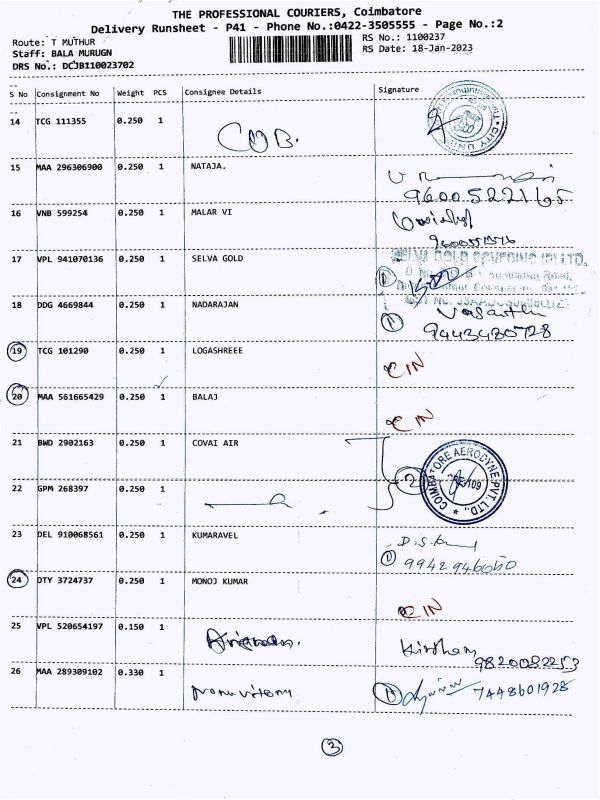 THE PROFESSIONAL COURIERS, Coimbatore
Delivery Runsheet - P41 - Phone No.:0422-3505555 - Page No.:2
Route: T MUTHUR RS No.: 1100237
Staff: BALA MURUGN RS Date: 18-Jan-2023
DRS No.: DCJB110023702
S No Consignment No Weight PCS Consignee Details Signature
14 TCG 111355 0.250 1
15 MAA 296306900 0.250 1 NATAJA.
9600522165
16 VNB 599254 0.250 1 MALAR VI
17 VPL 941070136 0.250 1 SELVA GOLD
18 DDG 4669844 0.250 1 NADARAJAN
Vasanthi
9443480728
19 TCG 101290 0.250 1 LOGASHREEE
CIN
20 MAA 561665429 0.250 1 BALAJ
CIN
21 BWD 2902163 0.250 1 COVAI AIR
2 COIMBATORE AERODYNE PVT. LTD.,
22 GPM 268397 0.250 1
23 DEL 910068561 0.250 1 KUMARAVEL
9942946050
24 OTY 3724737 0.250 1 MONOJ KUMAR
CIN
25 VPL 520654197 0.150 1
9820082253
26 MAA 289309102 0.330 1
7448601928
3